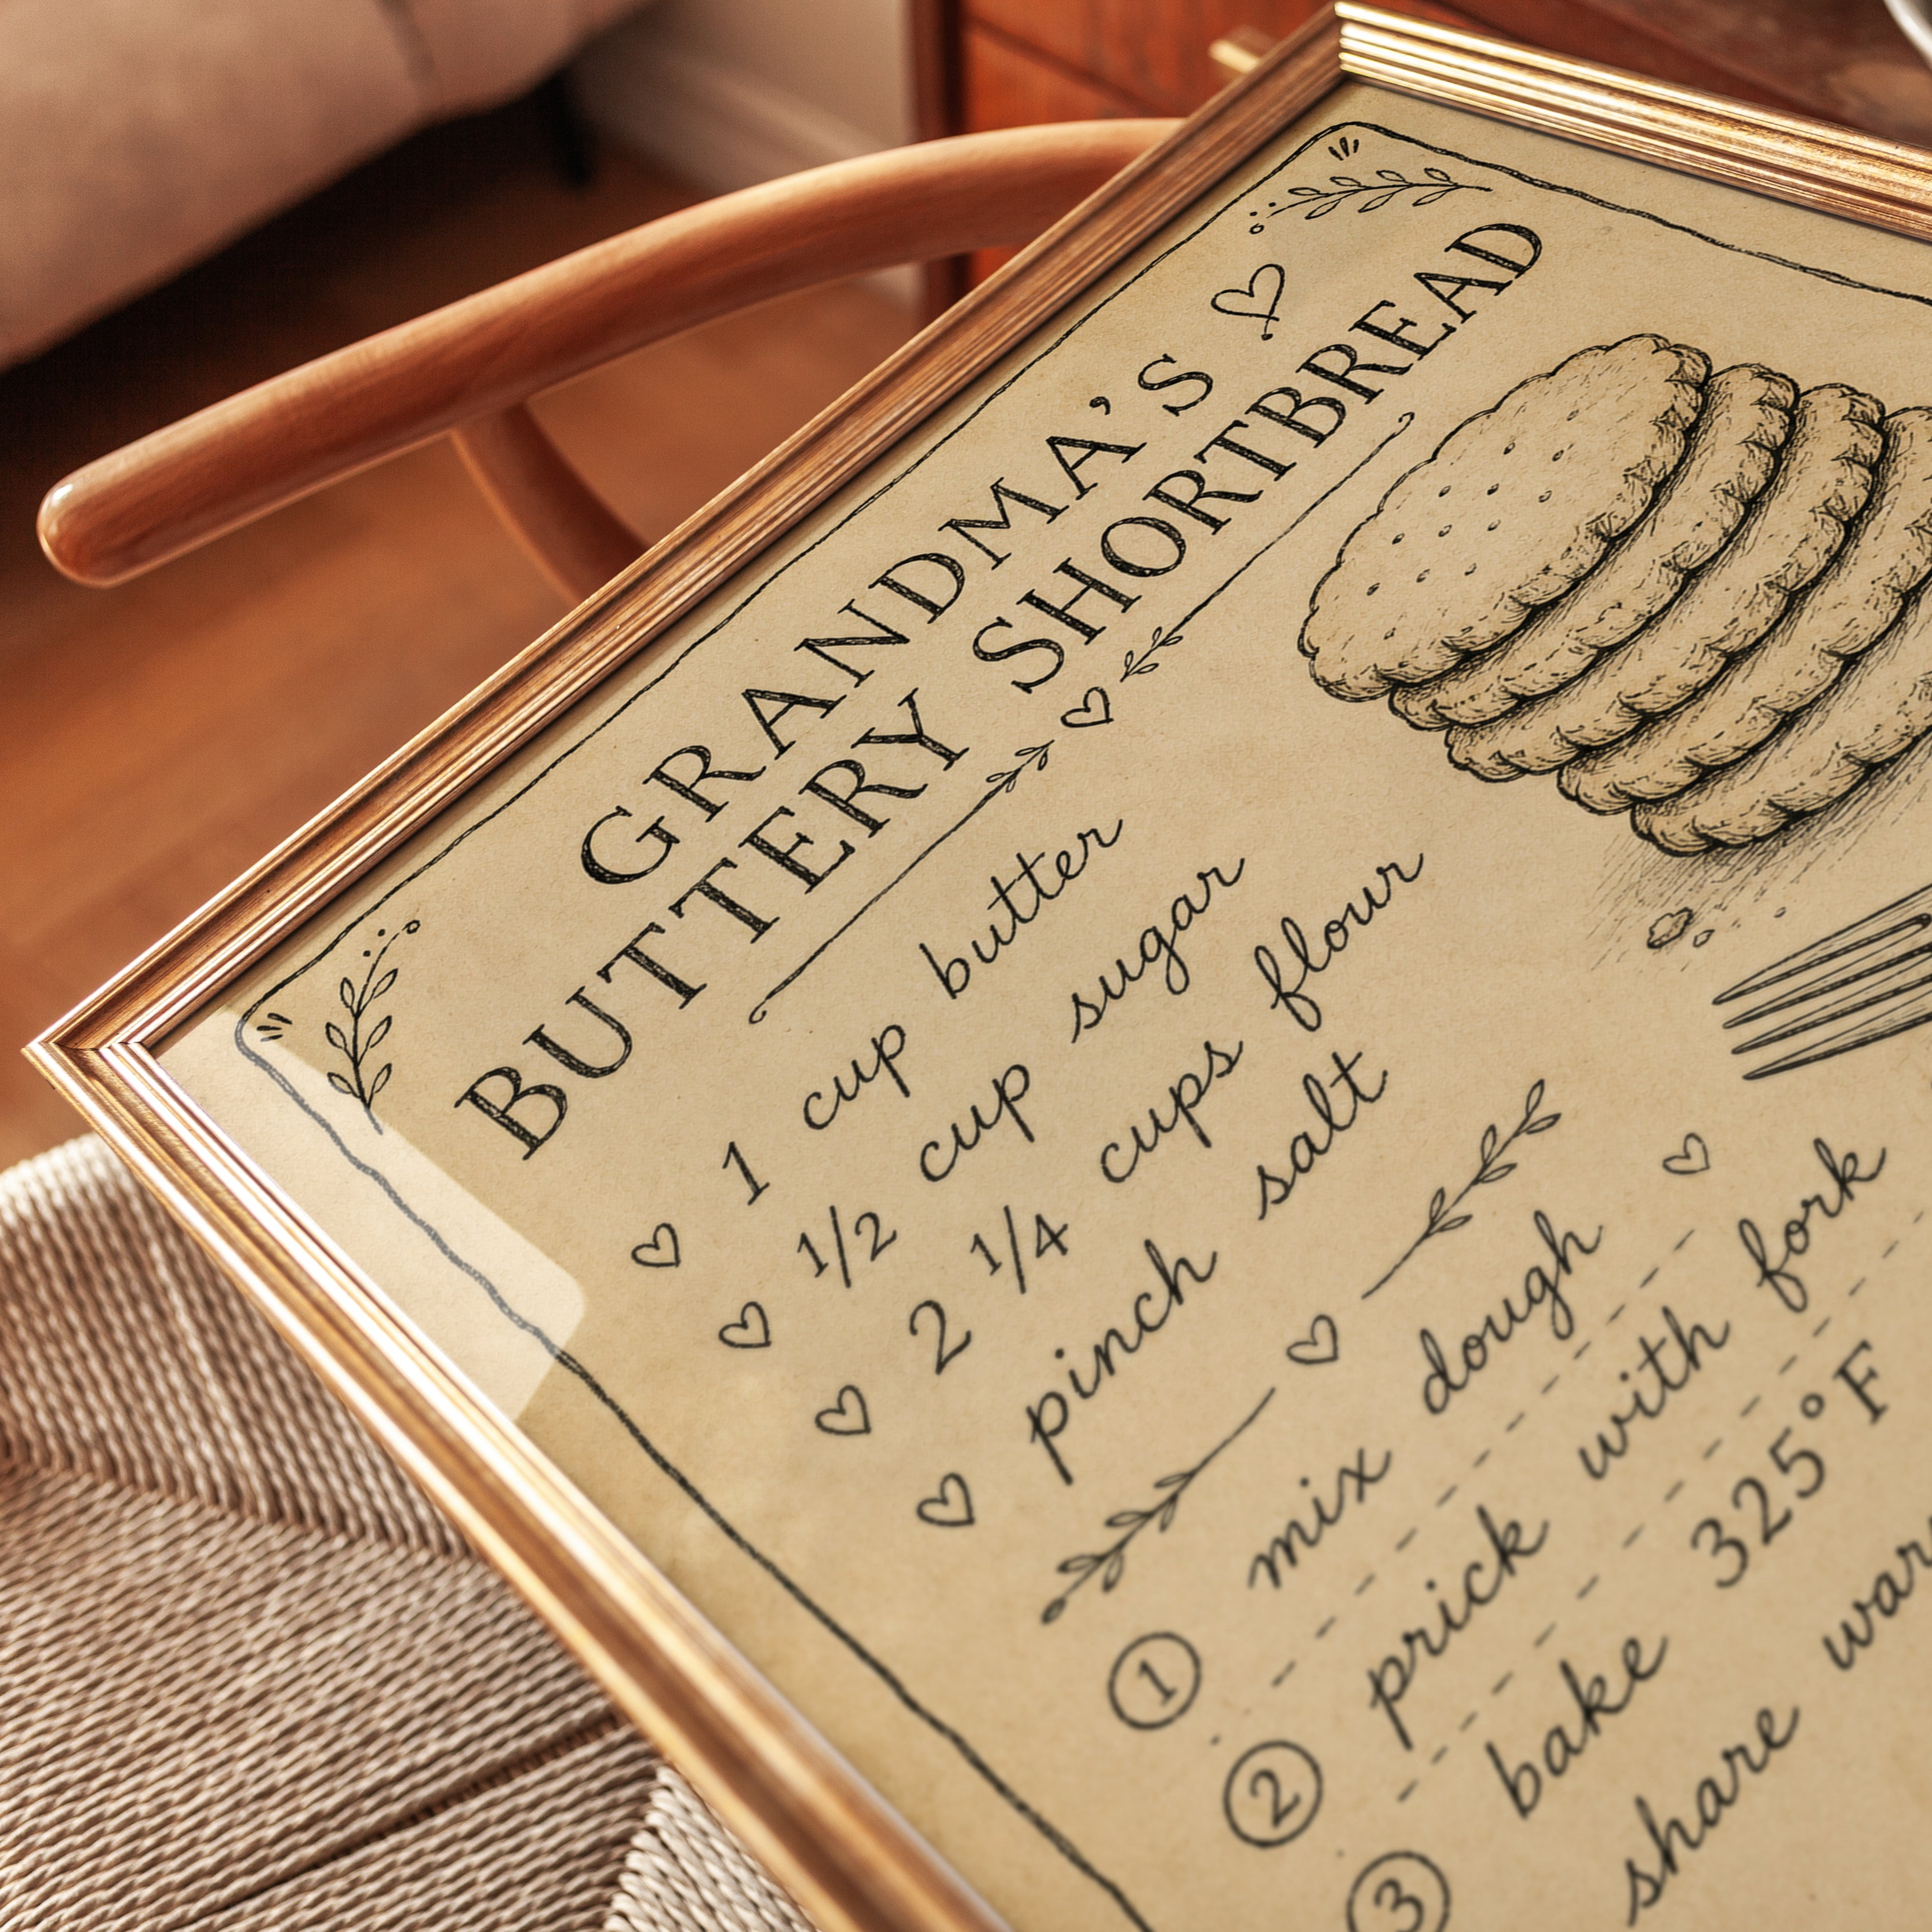 GRANDMA'S
BUTTERY SHORTBREAD
1 cup butter
1/2 cup sugar
2 1/4 cups flour
pinch salt
1 mix dough
2 prick with fork
3 bake 325°F
share